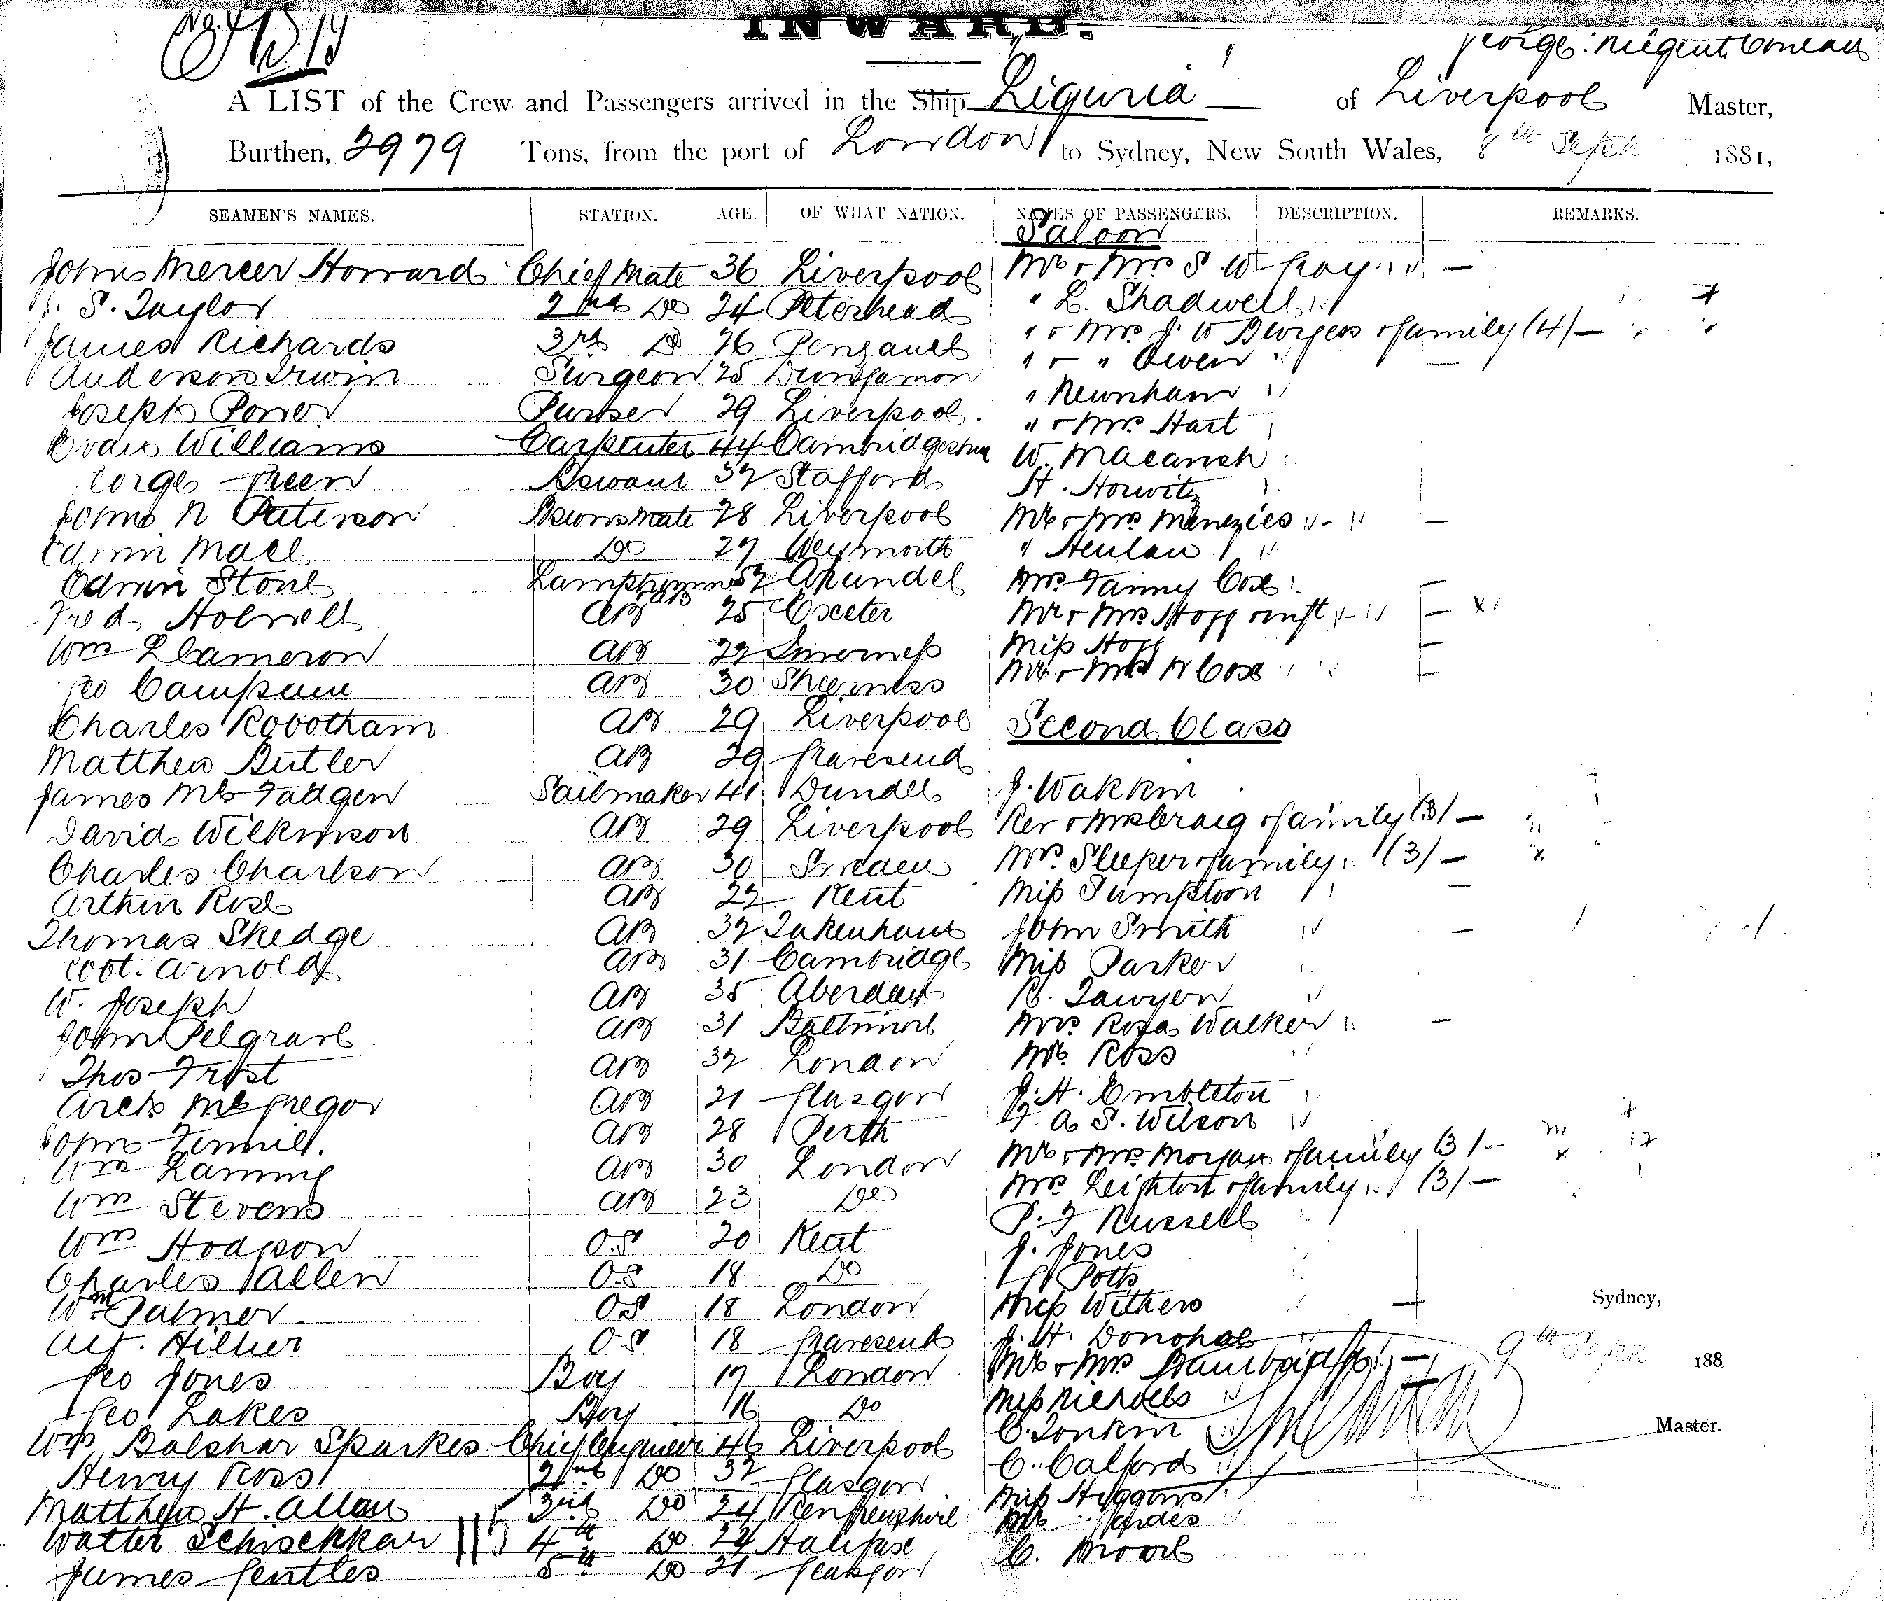 INWARD.
George Nugent Conlan
A LIST of the Crew and Passengers arrived in the Ship "Liguria" of Liverpool Master,
Burthen, 2979 Tons, from the port of London to Sydney, New South Wales, 8th Sept 1881,
SEAMEN'S NAMES. STATION. AGE. OF WHAT NATION. NAMES OF PASSENGERS. DESCRIPTION. REMARKS.
Saloon
John Mercer Howard Chief Mate 36 Liverpool Mr & Mrs S W Gray
S. Taylor 2nd Do 24 Peterhead " L. Shadwell
James Richards 3rd Do 26 Penzance " & Mrs J. W Burgess & family (4)
Anderson Irwin Surgeon 25 Dungannon " & " Owen
Joseph Power Purser 29 Liverpool " Newnham
Evan Williams Carpenter 44 Cambridgeshire " & Mrs Hart
George Green Boswain 32 Stafford W. Macansh
John N Paterson Bosuns Mate 28 Liverpool H. Horwitz
Edwin Mael Do 27 Weymouth Mr & Mrs Menzies
Edwin Stone Lamptrimmer 52 Arundel " Henlan
Fred Holwell AB 25 Exeter Mrs Fanny Cox
Wm L Cameron AB 22 Inverness Mr & Mrs Hogg & inft
Geo Campain AB 30 Sheerness Miss Hogg
Charles Robotham AB 29 Liverpool Mr & Mrs N Cox
Matthew Butler AB 29 Gravesend Second Class
James McFadgen Sailmaker 41 Dundee J. Wakkin
David Wilkinson AB 29 Liverpool Rev & Mrs Craig & family (3)
Charles Charlson AB 30 Sweden Mrs Sleeper & family (3)
Arthur Rose AB 22 Kent Miss Sumptoon
Thomas Skedge AB 32 Takenham John Smith
Arnold AB 31 Cambridge Miss Parker
W. Joseph AB 35 Aberdeen Sawyer
John Pelgrave AB 31 Baltimore Mrs Rosa Walker
Thos Frost AB 32 London Mr Ross
Arch McGregor AB 21 Glasgow J. H. Embleton
John Fennil. AB 28 Perth F A S. Wilson
Wm Laming AB 30 London Mr & Mrs Morgan & family (3)
Wm Stevens AB 23 Do Mrs Leighton & family (3)
Wm Hodgson O.S 20 Kent P. F Russell
Charles Allen O.S 18 Do J. Jones
Wm Palmer OS 18 London Potts
Alf. Hillier O.S 18 Gravesend Miss Withers
Sydney,
Geo Jones Boy 17 London J. H. Donohoe
9th Sept 188
Geo Lakes Boy 16 Do Mr & Mrs
Wm Balshar Sparkes Chief Engineer 46 Liverpool Miss Nicholls
Master.
Henry Ross 2nd Do 32 Glasgow C. Tonkin
Matthew H. Allan 3rd Do 24 Renfrewshire C. Calford
Walter Schisekkar 4th Do 24 Halifax Miss Higgins
James Gentles 5th Do 21 Glasgow Mr
C. Moore